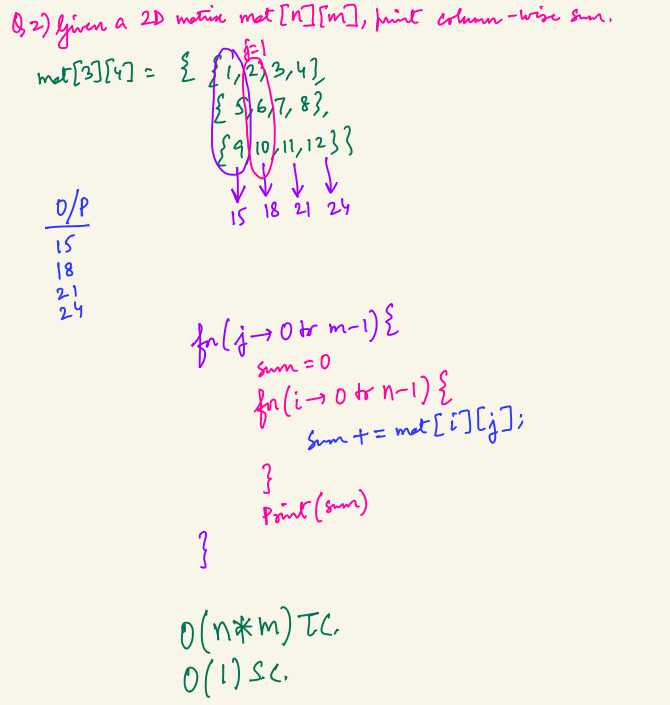 Q2) Given a 2D matrix mat[n][m], print column-wise sum.
j=1
mat[3][4] = { {1,2,3,4},
{5,6,7,8},
{9,10,11,12}}
15 18 21 24
O/P
15
18
21
24
for(j→0 to m-1){
sum=0
for(i→0 to n-1){
sum += mat[i][j];
}
Print(sum)
}
O(n*m) T.C.
O(1) S.C.